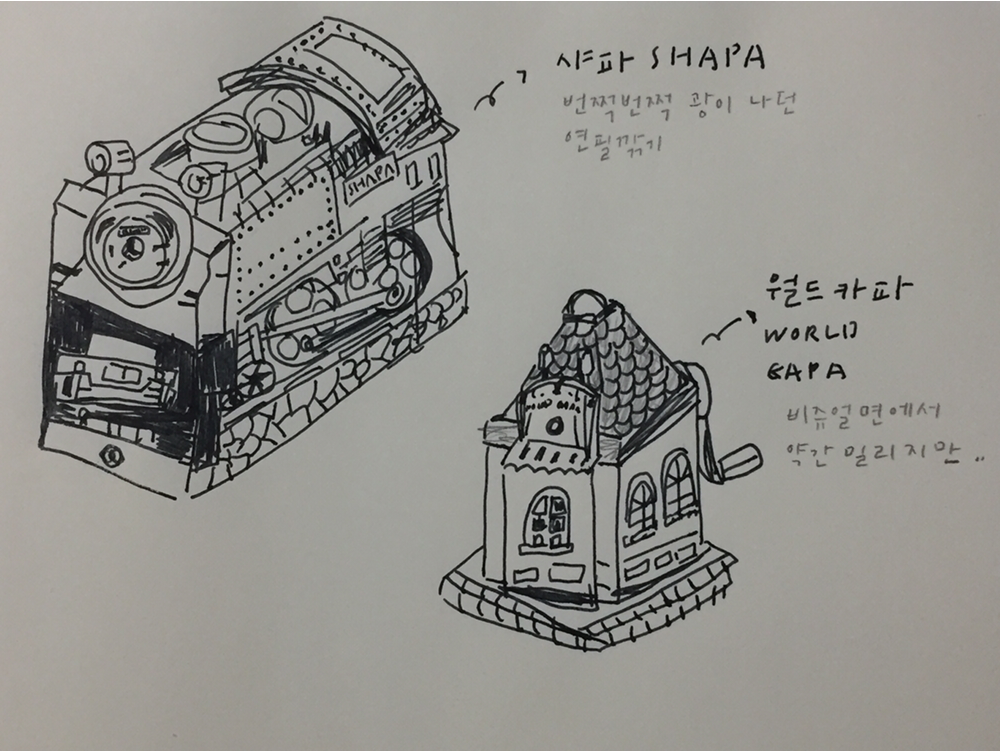 샤파 SHAPA
번쩍번쩍 광이 나던
연필깎기
SHAPA
월드카파
WORLD
CAPA
비쥬얼면에서
약간 밀리지만..